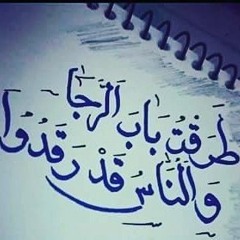 طَرَقْتُ بَابَ الرَّجَا
وَالنَّاسُ قَدْ رَقَدُوا